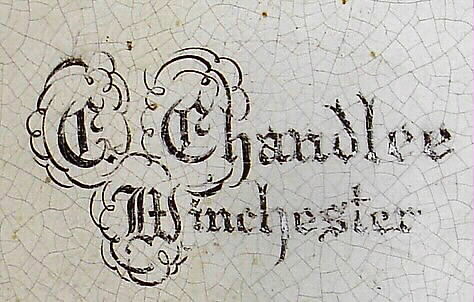 G. Chandlee
Winchester